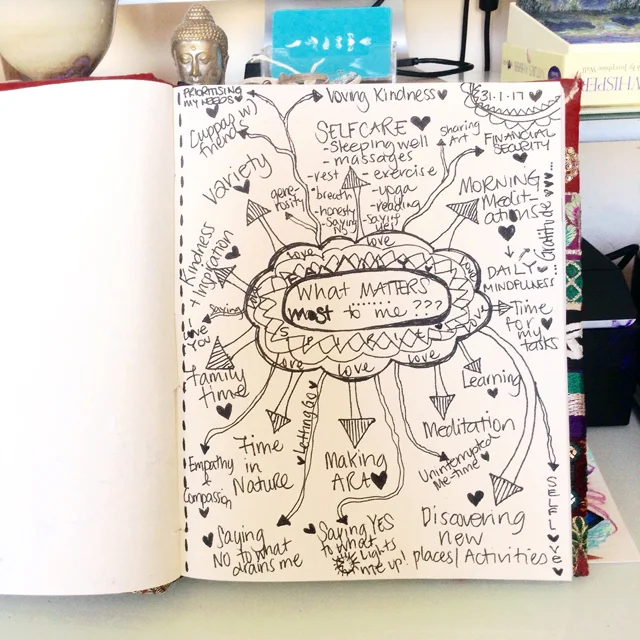 PRIORITISING
MY NEEDS
Loving Kindness
31.1.17
WHISPER
by Josephine Wall
Cuppas w/
friends
SELFCARE
- Sleeping well
- massages
- rest - exercise
- breath - yoga
- honesty - reading
- Saying
NO
sharing
Art
FINANCIAL
SECURITY
Variety
gene-
rosity
MORNING
Medit-
ations
Gratitude
Kindness
+ Imagination
DAILY
MINDFULNESS
Love
Love
Love
What MATTERS
most to me ???
Love
Love
Love
Love
Love
Giving
Love
You
Time
for my
tasks
family
time
Learning
Letting Go
Empathy
&
Compassion
Time
in
Nature
Making
ARA
Meditation
Uninterrupted
Me-time
SELF LOVE
Saying
NO to what
drains me
Saying YES
to what
Lights
me up!
Discovering
new
places/Activities